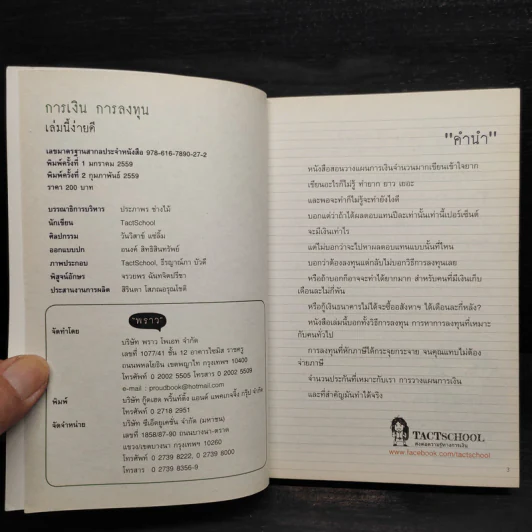 การเงิน การลงทุน
เล่มนี้ง่ายดี
เลขมาตรฐานสากลประจำหนังสือ 978-616-7890-27-2
พิมพ์ครั้งที่ 1 มกราคม 2559
พิมพ์ครั้งที่ 2 กุมภาพันธ์ 2559
ราคา 200 บาท
บรรณาธิการบริหาร ประภาพร ช่างไม้
นักเขียน TactSchool
ศิลปกรรม วันวิสาข์ แซ่ลิ้ม
ออกแบบปก อนงค์ สิทธิสินทรัพย์
ภาพประกอบ TactSchool, ธีรญาณ์ภา บัวดี
พิสูจน์อักษร จรวยพร ฉันทจิตปรีชา
ประสานงานการผลิต สิรินดา โสภณอรุณโชติ
"พราว"
จัดทำโดย บริษัท พราว โพเอท จำกัด
เลขที่ 1077/41 ชั้น 12 อาคารไซมิส ราชครู
ถนนพหลโยธิน เขตพญาไท กรุงเทพฯ 10400
โทรศัพท์ 0 2002 5505 โทรสาร 0 2002 5508
e-mail : proudbook@hotmail.com
พิมพ์ บริษัท กู๊ดเฮด พริ้นท์ติ้ง แอนด์ แพคเกจจิ้ง กรุ๊ป จำกัด
โทรศัพท์ 0 2718 2951
จัดจำหน่าย บริษัท ซีเอ็ดยูเคชั่น จำกัด (มหาชน)
เลขที่ 1858/87-90 ถนนบางนา-ตราด
แขวง/เขตบางนา กรุงเทพฯ 10260
โทรศัพท์ 0 2739 8222, 0 2739 8000
โทรสาร 0 2739 8356-9
"คำนำ"
หนังสือสอนวางแผนการเงินจำนวนมากเขียนเข้าใจยาก
เขียนอะไรก็ไม่รู้ ทำยาก ยาว เยอะ
และพอจะทำก็ไม่รู้จะทำยังไงดี
บอกแต่ว่าถ้าได้ผลตอบแทนปีละเท่านั้นเท่านี้เปอร์เซ็นต์
จะมีเงินเท่าไร
แต่ไม่บอกว่าจะไปหาผลตอบแทนแบบนั้นที่ไหน
บอกว่าต้องลงทุนแต่กลับไม่บอกวิธีการลงทุนเลย
หรือถ้าบอกก็อาจจะทำได้ยากมาก สำหรับคนที่มีเงินเก็บ
เดือนละไม่กี่พัน
หรือกู้เงินธนาคารไม่ได้จะซื้ออสังหาฯ ได้เดือนละกี่หลัง?
หนังสือเล่มนี้บอกทั้งวิธีการลงทุน การหาการลงทุนที่เหมาะ
กับคนทั่วไป
การลงทุนที่หักภาษีได้กระจุยกระจาย จนคุณแทบไม่ต้อง
จ่ายภาษี
จำนวนประกันที่เหมาะกับเรา การวางแผนการเงิน
และที่สำคัญมันทำได้จริง
TACTSCHOOL
www.facebook.com/tactschool